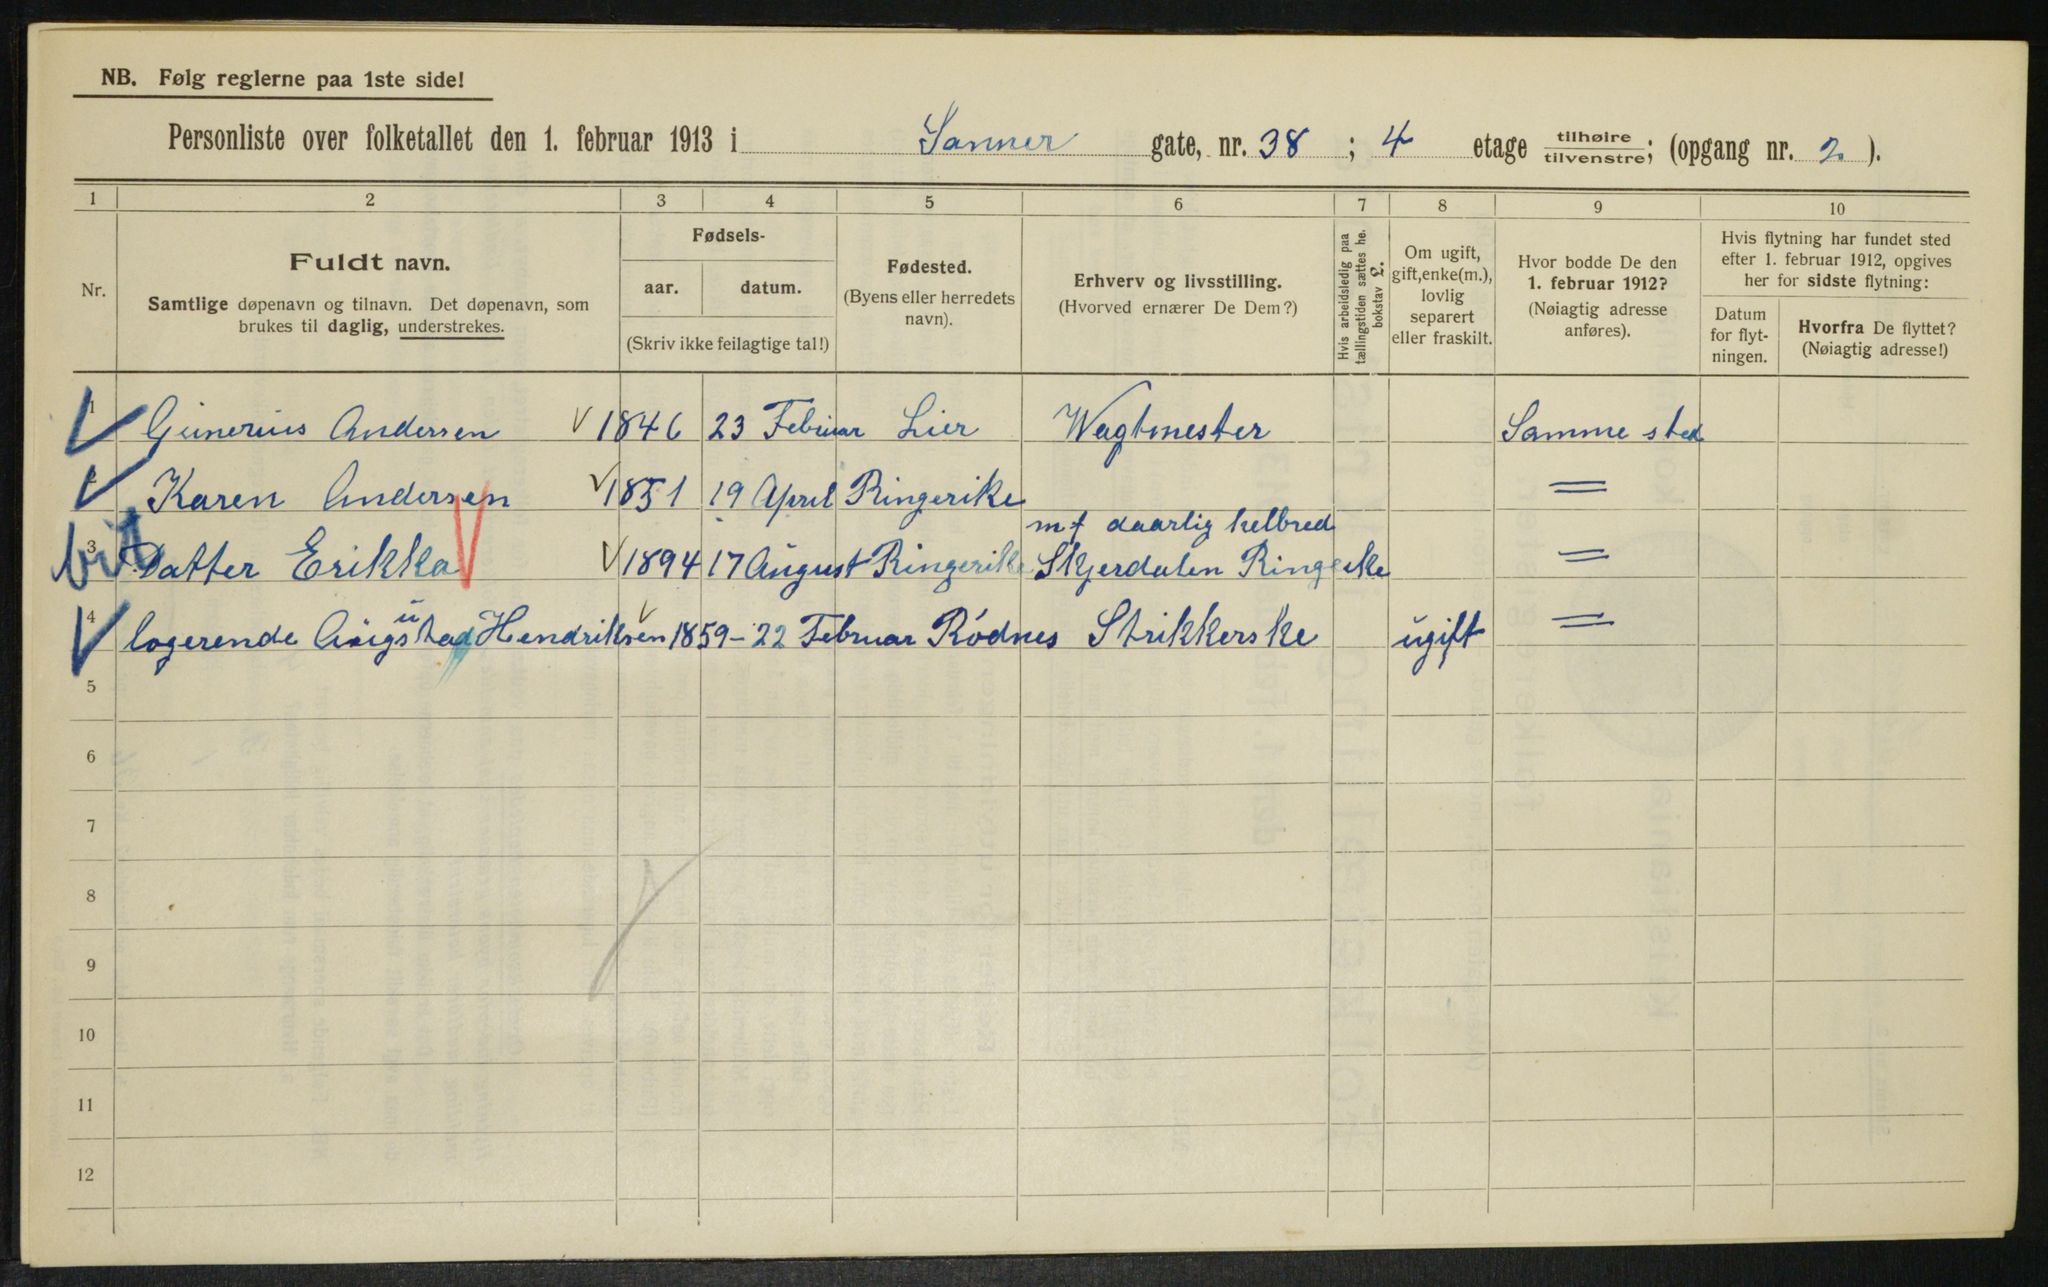 NB. Følg reglerne paa 1ste side!
Personliste over folketallet den 1. februar 1913 i Sanner gate, nr. 38 ; 4 etage tilhøire tilvenstre; (opgang nr. 2 ).
1 2 3 4 5 6 7 8 9 10
Nr.
Fuldt navn.
Samtlige døpenavn og tilnavn. Det døpenavn, som
brukes til daglig, understrekes.
Fødsels-
aar. datum.
(Skriv ikke feilagtige tal!)
Fødested.
(Byens eller herredets
navn).
Erhverv og livsstilling.
(Hvorved ernærer De Dem?)
Hvis arbeidsledig paa
tællingstiden sættes he.
bokstav L.
Om ugift,
gift, enke(m.),
lovlig
separert
eller fraskilt.
Hvor bodde De den
1. februar 1912?
(Nøiagtig adresse
anføres).
Hvis flytning har fundet sted
efter 1. februar 1912, opgives
her for sidste flytning:
Datum
for flyt-
ningen.
Hvorfra De flyttet?
(Nøiagtig adresse!)
1 Gunerius Andersen 1846 23 Februar Lier Wagtmester Samme sted
2 Karen Andersen 1851 19 April Ringerike =
m f daarlig helbred
3 Datter Erikka 1894 17 August Ringerike Skjerdalen Ringerike =
4 logerende Augusta Hendriksen 1859 - 22 Februar Rødnes Strikkerske ugift =
5
6
7
8
9
10
11
12